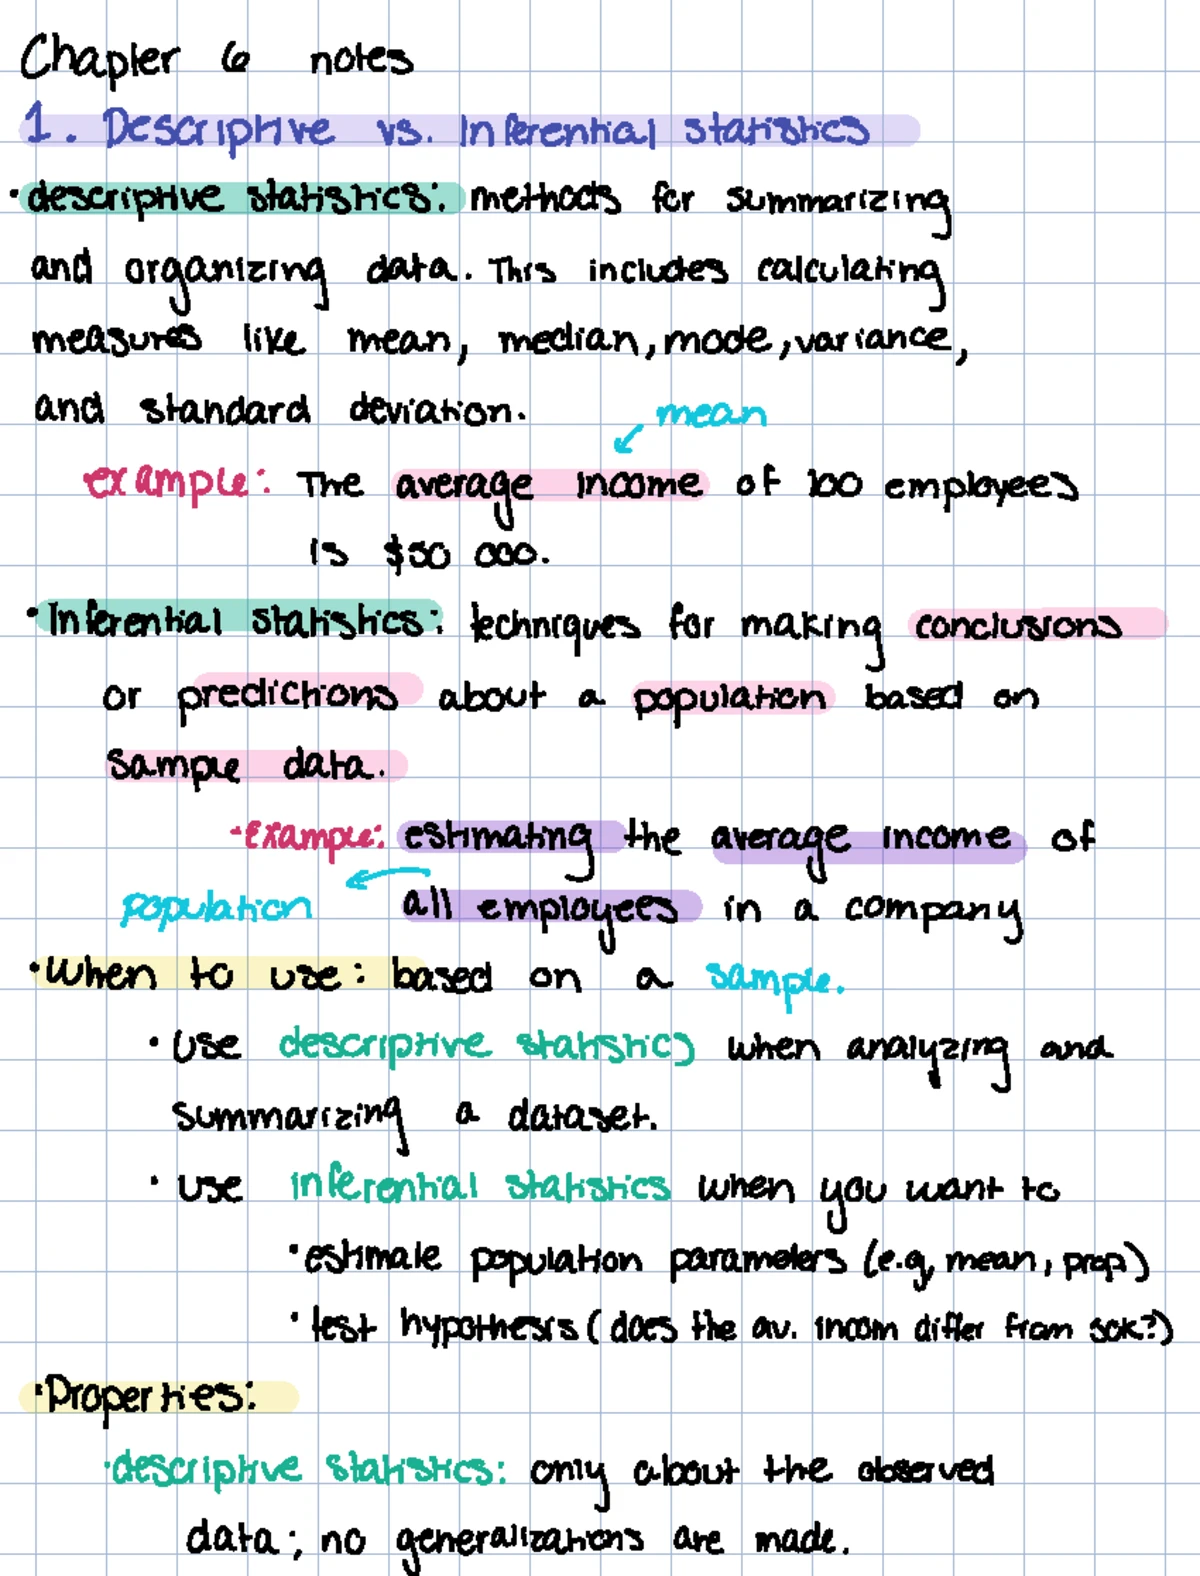 Chapter 6 notes
1. Descriptive vs. Inferential statistics
·descriptive statistics: methods for summarizing
and organizing data. This includes calculating
measures like mean, median, mode, variance,
and standard deviation.
mean
example: The average income of 100 employees
is $50 000.
·Inferential statistics: techniques for making conclusions
or predictions about a population based on
sample data.
·Example: estimating the average income of
population all employees in a company
·When to use: based on a sample.
·Use descriptive statistics when analyzing and
summarizing a dataset.
·use inferential statistics when you want to
·estimate population parameters (e.g, mean, prop)
·test hypothesis (does the av. incom differ from 50k?)
·Properties:
·descriptive statistics: only about the observed
data; no generalizations are made.